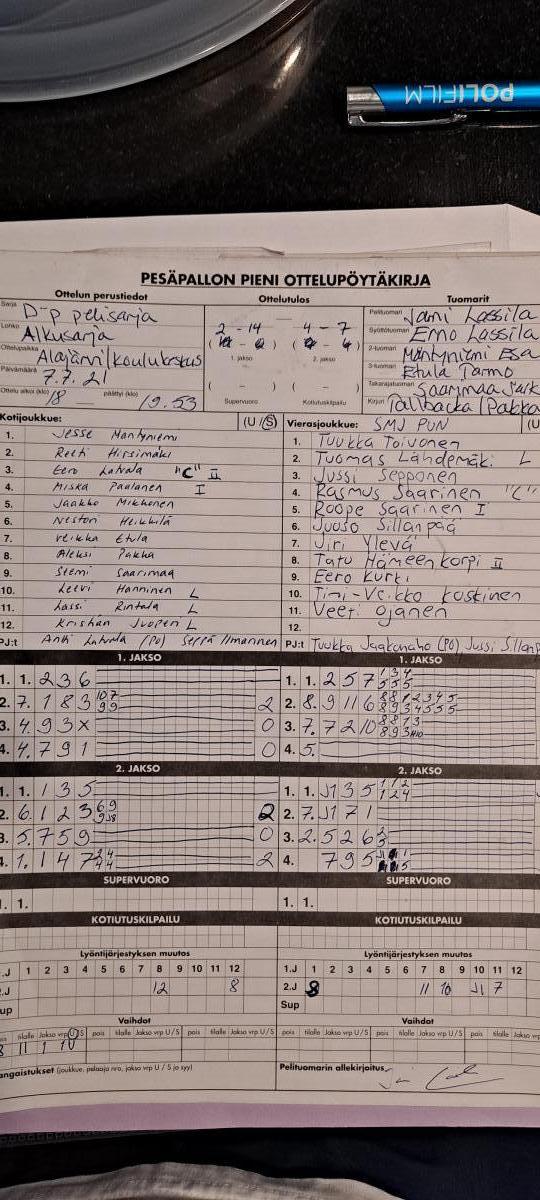 POLIFILM
PESÄPALLON PIENI OTTELUPÖYTÄKIRJA
Ottelun perustiedot
Sarja D-p pelisarja
Lohko Alkusarja
Ottelupaikka Alajärvi/koulukeskus
Päivämäärä 7.7.21
Ottelu alkoi (klo) 18 päättyi (klo) 19.53
Ottelutulos
2 - 14 4 - 7
1. jakso 2. jakso
( – ) ( – )
Supervuoro Kotiutuskilpailu
Tuomarit
Pelituomari Jani Lassila
Syöttötuomari Erno Lassila
2-tuomari Mäntyniemi Esa
3-tuomari Etula Tarmo
Takarajatuomari Saarimaa
Kirjuri
Kotijoukkue: (U/S)
1. Jesse Mäntyniemi
2. Retti Hirsimäki
3. Eero Latvala "C" II
4. Miska Paalanen I
5. Jaakko Mikkonen
6. Nestori Heikkilä
7. Veikka Etula
8. Aleksi Pakka
9. Saarimaa
10. Leevi Hänninen L
11. Lassi Rintala L
12. Kristian Juopen L
PJ:t Antti Latvala (PO) Seppä Ilmannen
Vierasjoukkue: SMJ PUN (U
1. Tuukka Toivonen
2. Tuomas Lähdemäki L
3. Jussi Sepponen
4. Rasmus Saarinen "C"
5. Roope Saarinen I
6. Juuso Sillanpää
7. Jiri Ylevä
8. Tatu Hämeenkorpi II
9. Eero Kurki
10. Timi-Veikko Koskinen
11. Veeti Ojanen
12.
PJ:t Tuukka Jaakonaho (PO) Jussi
1. JAKSO
1. 1. 2 3 6
2. 7. 1 8 3 2
3. 4. 9 3 x 0
4. 4. 7 9 1 0
2. JAKSO
1. 1. 1 3 5
2. 6. 1 2 3 2
3. 5. 7 5 9 0
4. 1. 1 4 7 2
SUPERVUORO
1. 1.
KOTIUTUSKILPAILU
1. JAKSO
1. 1. 2 5 7
2. 8. 9 11 6
3. 7. 7 2 10
4. 5.
2. JAKSO
1. 1. J1 3 5
2. 7. J1 7 1
3. 2. 5 2 6
4. 7 9 5
SUPERVUORO
1. 1.
KOTIUTUSKILPAILU
Lyöntijärjestyksen muutos
.J 1 2 3 4 5 6 7 8 9 10 11 12
.J 12 8
up
Lyöntijärjestyksen muutos
1.J 1 2 3 4 5 6 7 8 9 10 11 12
2.J 8 11 10 J1 7
Sup
Vaihdot
tilalle Jakso vrp U/S pois tilalle Jakso vrp U/S pois tilalle Jakso vrp U/S
8 11 1 1U
Vaihdot
pois tilalle Jakso vrp U/S pois tilalle Jakso vrp U/S pois tilalle Jakso vrp U
angaistukset (joukkue, pelaaja nro, jakso vrp U / S ja syy)
Pelituomarin allekirjoitus